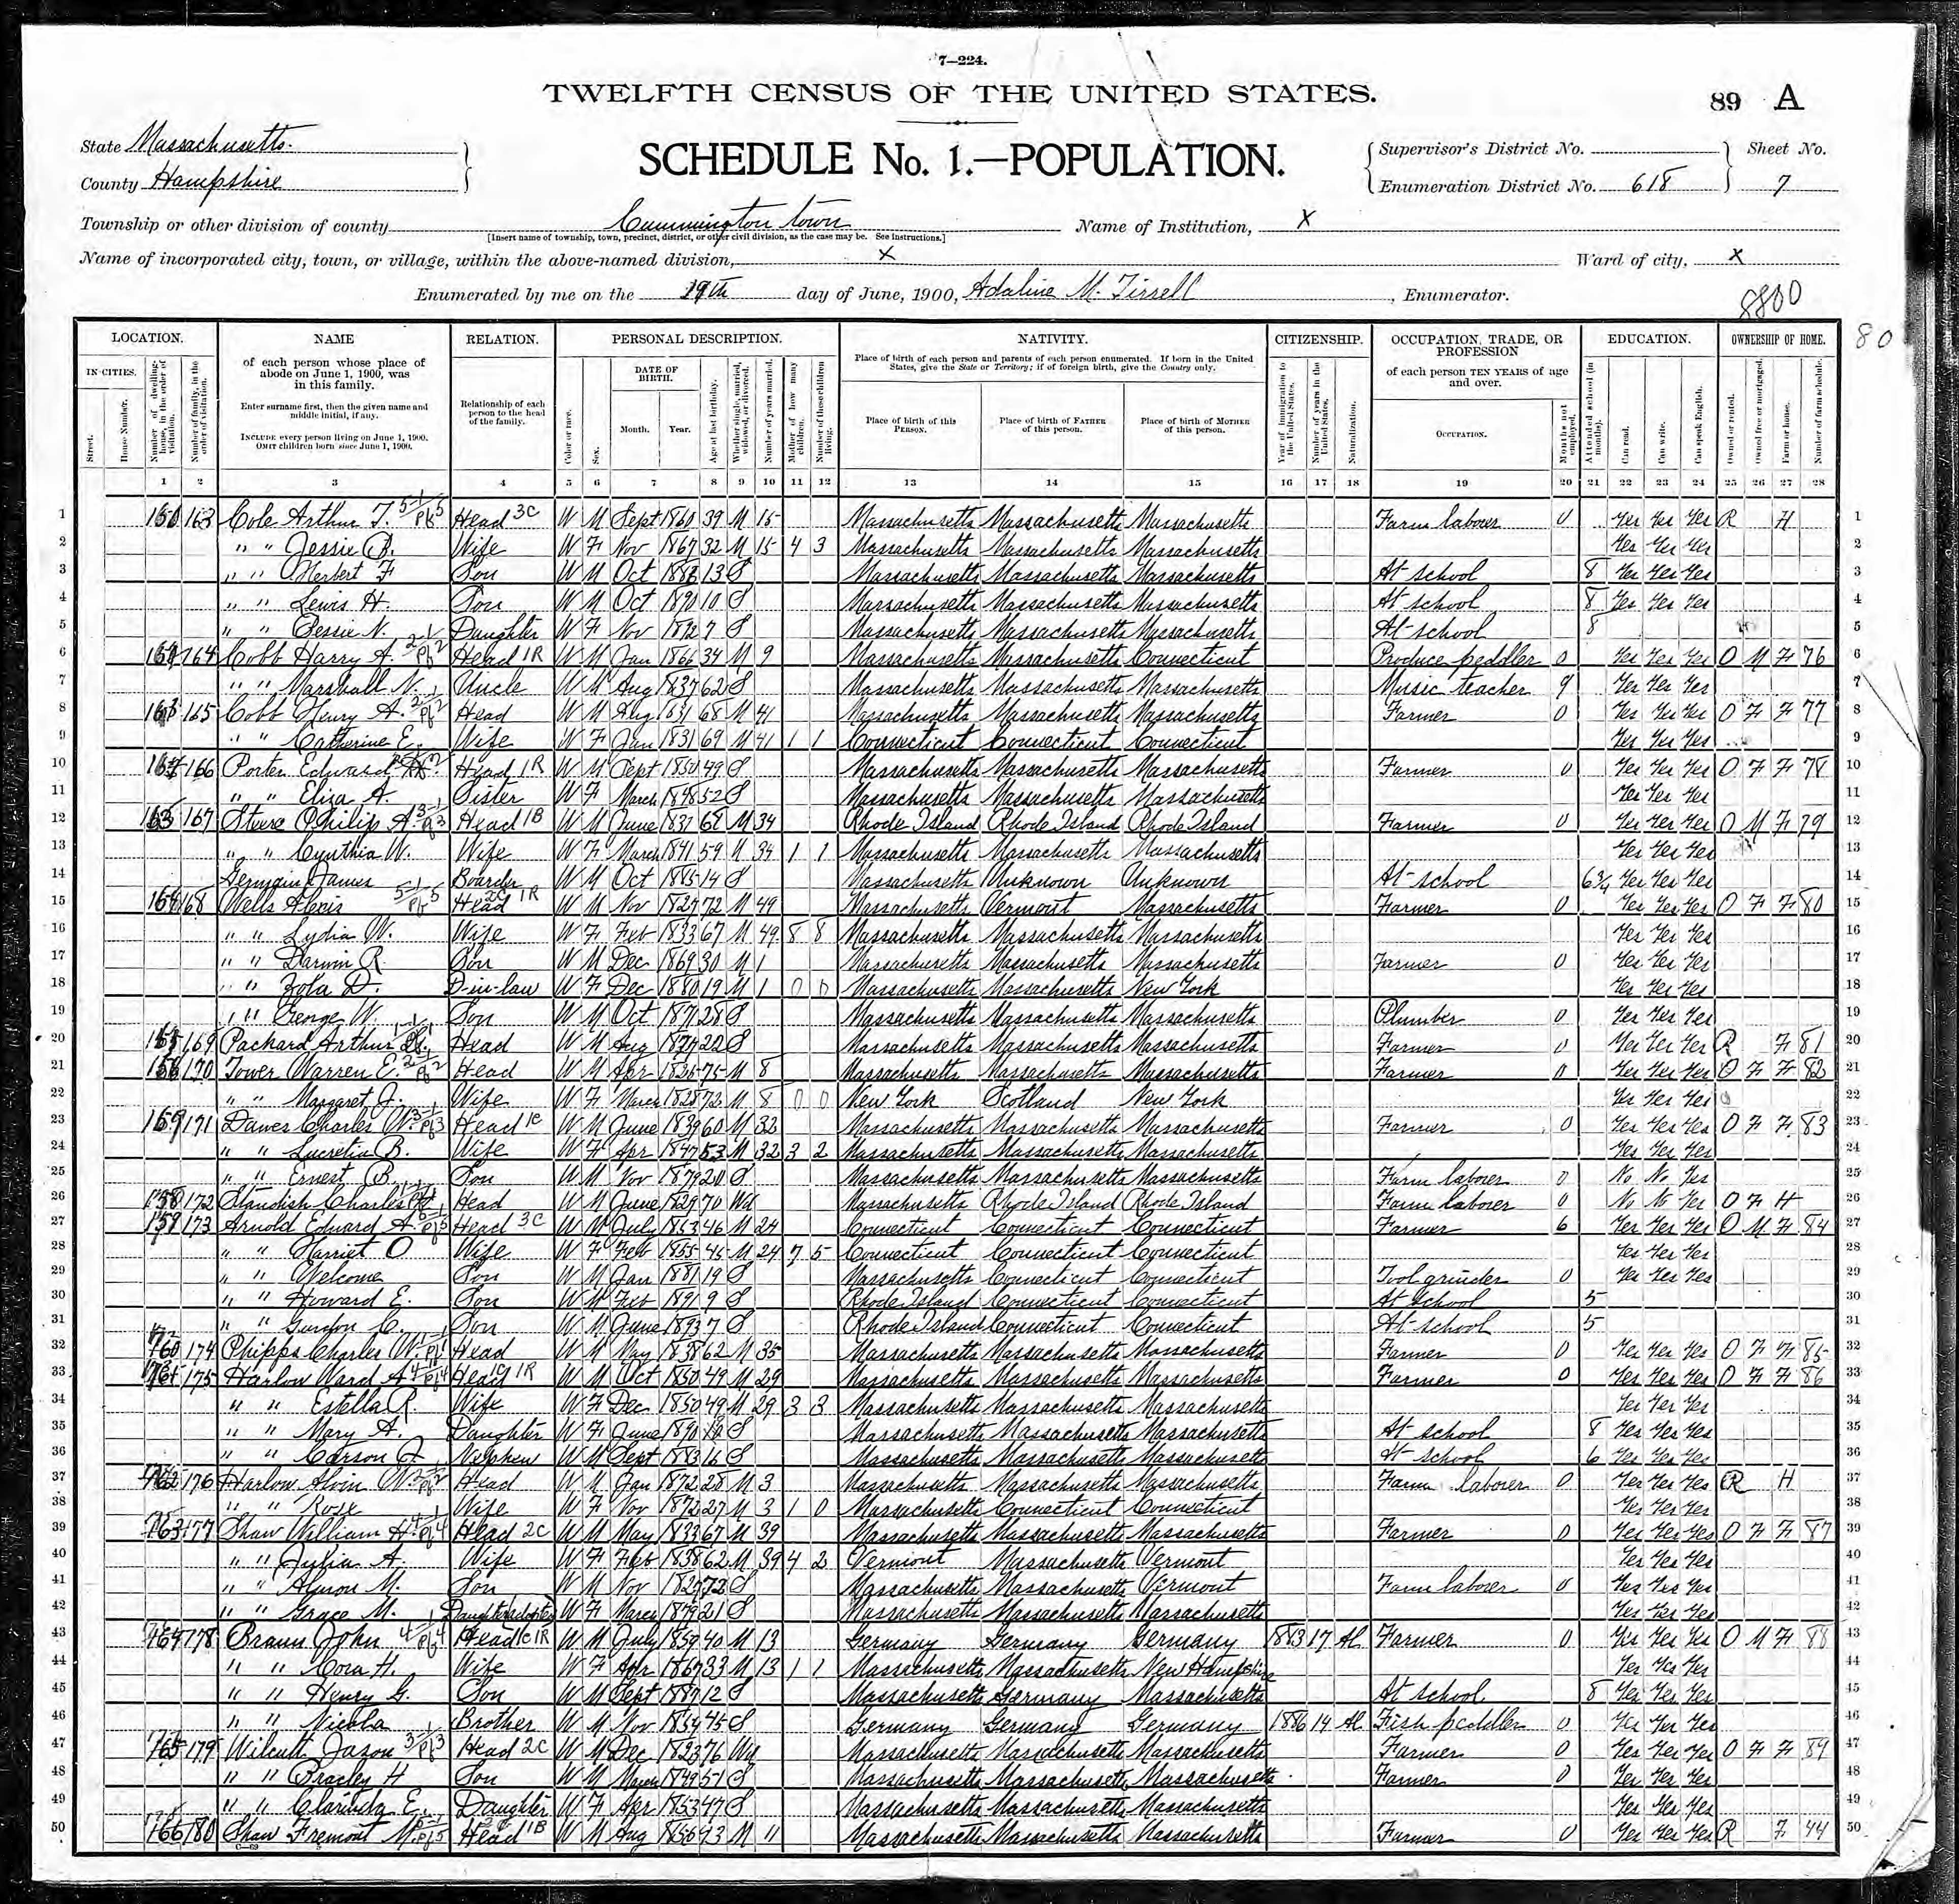 7—224.
TWELFTH CENSUS OF THE UNITED STATES.
89 A
State Massachusetts.
County Hampshire
SCHEDULE No. 1.—POPULATION.
Supervisor's District No.
Enumeration District No. 618
Sheet No. 7
Township or other division of county Cummington town
[Insert name of township, town, precinct, district, or other civil division, as the case may be. See instructions.]
Name of Institution, X
Name of incorporated city, town, or village, within the above-named division, X
Ward of city, X
Enumerated by me on the 19th day of June, 1900, Adaline M. Tirrell, Enumerator.
8800
80
LOCATION. NAME RELATION. PERSONAL DESCRIPTION. NATIVITY. CITIZENSHIP. OCCUPATION, TRADE, OR PROFESSION EDUCATION. OWNERSHIP OF HOME.
IN CITIES. Street. House Number. Number of dwelling-house, in the order of visitation. Number of family, in the order of visitation.
of each person whose place of abode on June 1, 1900, was in this family.
Enter surname first, then the given name and middle initial, if any.
INCLUDE every person living on June 1, 1900. OMIT children born since June 1, 1900.
Relationship of each person to the head of the family.
Color or race. Sex. DATE OF BIRTH. Month. Year. Age at last birthday. Whether single, married, widowed, or divorced. Number of years married. Mother of how many children. Number of these children living.
Place of birth of each person and parents of each person enumerated. If born in the United States, give the State or Territory; if of foreign birth, give the Country only.
Place of birth of this PERSON. Place of birth of FATHER of this person. Place of birth of MOTHER of this person.
Year of immigration to the United States. Number of years in the United States. Naturalization.
of each person TEN YEARS of age and over.
OCCUPATION. Months not employed.
Attended school (in months). Can read. Can write. Can speak English.
Owned or rented. Owned free or mortgaged. Farm or house. Number of farm schedule.
1 2 3 4 5 6 7 8 9 10 11 12 13 14 15 16 17 18 19 20 21 22 23 24 25 26 27 28
1 163 Cole Arthur T. Head W M Sept 1860 39 M 15 Massachusetts Massachusetts Massachusetts Farm laborer 0 Yes Yes Yes R H 1
2 " " Jessie B. Wife W F Nov 1867 32 M 15 4 3 Massachusetts Massachusetts Massachusetts Yes Yes Yes 2
3 " " Herbert F Son W M Oct 13 S Massachusetts Massachusetts Massachusetts At school 8 Yes Yes Yes 3
4 " " Lewis H. Son W M Oct 1890 10 S Massachusetts Massachusetts Massachusetts At school 8 Yes Yes Yes 4
5 " " Bessie N. Daughter W F Nov 1892 7 S Massachusetts Massachusetts Massachusetts At school 8 5
6 164 Cobb Harry A. Head W M Jan 1866 34 M 9 Massachusetts Massachusetts Connecticut Produce peddler 0 Yes Yes Yes O M F 76 6
7 " " Marshall N. Uncle W M Aug 1837 62 S Massachusetts Massachusetts Massachusetts Music teacher 9 Yes Yes Yes 7
8 165 Cobb Henry A. Head W M Aug 1831 68 M 41 Massachusetts Massachusetts Massachusetts Farmer 0 Yes Yes Yes O F F 77 8
9 " " Catherine E. Wife W F Jan 1831 69 M 41 1 1 Connecticut Connecticut Connecticut Yes Yes Yes 9
10 166 Porter Edward Head W M Sept 1850 49 S Massachusetts Massachusetts Massachusetts Farmer 0 Yes Yes Yes O F F 78 10
11 " " Eliza A. Sister W F March 1848 52 S Massachusetts Massachusetts Massachusetts Yes Yes Yes 11
12 167 Steere Philip A. Head W M June 1831 68 M 34 Rhode Island Rhode Island Rhode Island Farmer 0 Yes Yes Yes O M F 79 12
13 " " Cynthia W. Wife W F March 1841 59 M 34 1 1 Massachusetts Massachusetts Massachusetts Yes Yes Yes 13
14 Germain James Boarder W M Oct 1885 14 S Massachusetts Unknown Unknown At school 6¾ Yes Yes Yes 14
15 168 Wells Alexis Head W M Nov 1827 72 M 49 Massachusetts Vermont Massachusetts Farmer 0 Yes Yes Yes O F F 80 15
16 " " Lydia W. Wife W F Feb 1833 67 M 49 8 8 Massachusetts Massachusetts Massachusetts Yes Yes Yes 16
17 " " Darwin R. Son W M Dec 1869 30 M 1 Massachusetts Massachusetts Massachusetts Farmer 0 Yes Yes Yes 17
18 " " Zola D. D-in-law W F Dec 1880 19 M 1 0 0 Massachusetts Massachusetts New York Yes Yes Yes 18
19 " " George W. Son W M Oct 1871 28 S Massachusetts Massachusetts Massachusetts Plumber 0 Yes Yes Yes 19
20 169 Packard Arthur Head W M Aug 1877 22 S Massachusetts Massachusetts Massachusetts Farmer 0 Yes Yes Yes R F 81 20
21 170 Tower Warren E. Head W M Apr 75 M 8 Massachusetts Massachusetts Massachusetts Farmer 0 Yes Yes Yes O F F 82 21
22 " " Margaret J. Wife W F March 1828 72 M 8 0 0 New York Scotland New York Yes Yes Yes 22
23 171 Dawes Charles W. Head W M June 1839 60 M 32 Massachusetts Massachusetts Massachusetts Farmer 0 Yes Yes Yes O F F 83 23
24 " " Lucretia B. Wife W F Apr 1847 53 M 32 3 2 Massachusetts Massachusetts Massachusetts Yes Yes Yes 24
25 " " Ernest B. Son W M Nov 1879 20 S Massachusetts Massachusetts Massachusetts Farm laborer 0 No No Yes 25
26 158 172 Standish Charles Head W M June 1829 70 Wd Massachusetts Rhode Island Rhode Island Farm laborer 0 No No Yes O F H 26
27 173 Arnold Edward A. Head 3C W M July 1853 46 M 24 Connecticut Connecticut Connecticut Farmer 6 Yes Yes Yes O M F 84 27
28 " " Harriet O. Wife W F Feb 1855 45 M 24 7 5 Connecticut Connecticut Connecticut Yes Yes Yes 28
29 " " Welcome Son W M Jan 1881 19 S Massachusetts Connecticut Connecticut Tool grinder 0 Yes Yes Yes 29
30 " " Howard E. Son W M Feb 1891 9 S Rhode Island Connecticut Connecticut At school 5 30
31 " " Gurdon C. Son W M June 7 S Rhode Island Connecticut Connecticut At school 5 31
32 174 Phipps Charles W. Head W M May 1838 62 M 35 Massachusetts Massachusetts Massachusetts Farmer 0 Yes Yes Yes O F F 85 32
33 175 Harlow Ward A. Head W M Oct 1850 49 M 29 Massachusetts Massachusetts Massachusetts Farmer 0 Yes Yes Yes O F F 86 33
34 " " Estella R. Wife W F Dec 1850 49 M 29 3 3 Massachusetts Massachusetts Massachusetts Yes Yes Yes 34
35 " " Mary A. Daughter W F June S Massachusetts Massachusetts Massachusetts At school 8 Yes Yes Yes 35
36 " " Carson J. Nephew W M Sept 1883 16 S Massachusetts Massachusetts Massachusetts At school 6 Yes Yes Yes 36
37 176 Harlow Alvin W. Head W M Jan 1872 28 M 3 Massachusetts Massachusetts Massachusetts Farm laborer 0 Yes Yes Yes R H 37
38 " " Rose Wife W F Nov 1872 27 M 3 1 0 Massachusetts Connecticut Connecticut Yes Yes Yes 38
39 177 Shaw William H. Head 2C W M May 1833 67 M 39 Massachusetts Massachusetts Massachusetts Farmer 0 Yes Yes Yes O F F 87 39
40 " " Julia A. Wife W F Feb 1838 62 M 39 4 2 Vermont Massachusetts Vermont Yes Yes Yes 40
41 " " Almon M. Son W M Nov S Massachusetts Massachusetts Vermont Farm laborer 0 Yes Yes Yes 41
42 " " Grace M. Daughter adopted W F March 1879 21 S Massachusetts Massachusetts Massachusetts Yes Yes Yes 42
43 178 Braun John Head W M July 1859 40 M 13 Germany Germany Germany 1883 17 Al Farmer 0 Yes Yes Yes O M F 88 43
44 " " Cora H. Wife W F Apr 1867 33 M 13 1 1 Massachusetts Massachusetts New Hampshire Yes Yes Yes 44
45 " " Henry G. Son W M Sept 1887 12 S Massachusetts Germany Massachusetts At school 8 Yes Yes Yes 45
46 " " Nicola Brother W M Nov 1854 45 S Germany Germany Germany 1886 14 Al Fish peddler 0 Yes Yes Yes 46
47 179 Wilcutt Jason Head 2C W M Dec 1823 76 Wd Massachusetts Massachusetts Massachusetts Farmer 0 Yes Yes Yes O F F 89 47
48 " " Bradley H Son W M March 1849 51 S Massachusetts Massachusetts Massachusetts Farmer 0 Yes Yes Yes 48
49 " " Clarinda E. Daughter W F Apr 1853 47 S Massachusetts Massachusetts Massachusetts Yes Yes Yes 49
50 180 Shaw Fremont M. Head W M Aug 1856 43 M 11 Massachusetts Massachusetts Massachusetts Farmer 0 Yes Yes Yes R F 44 50